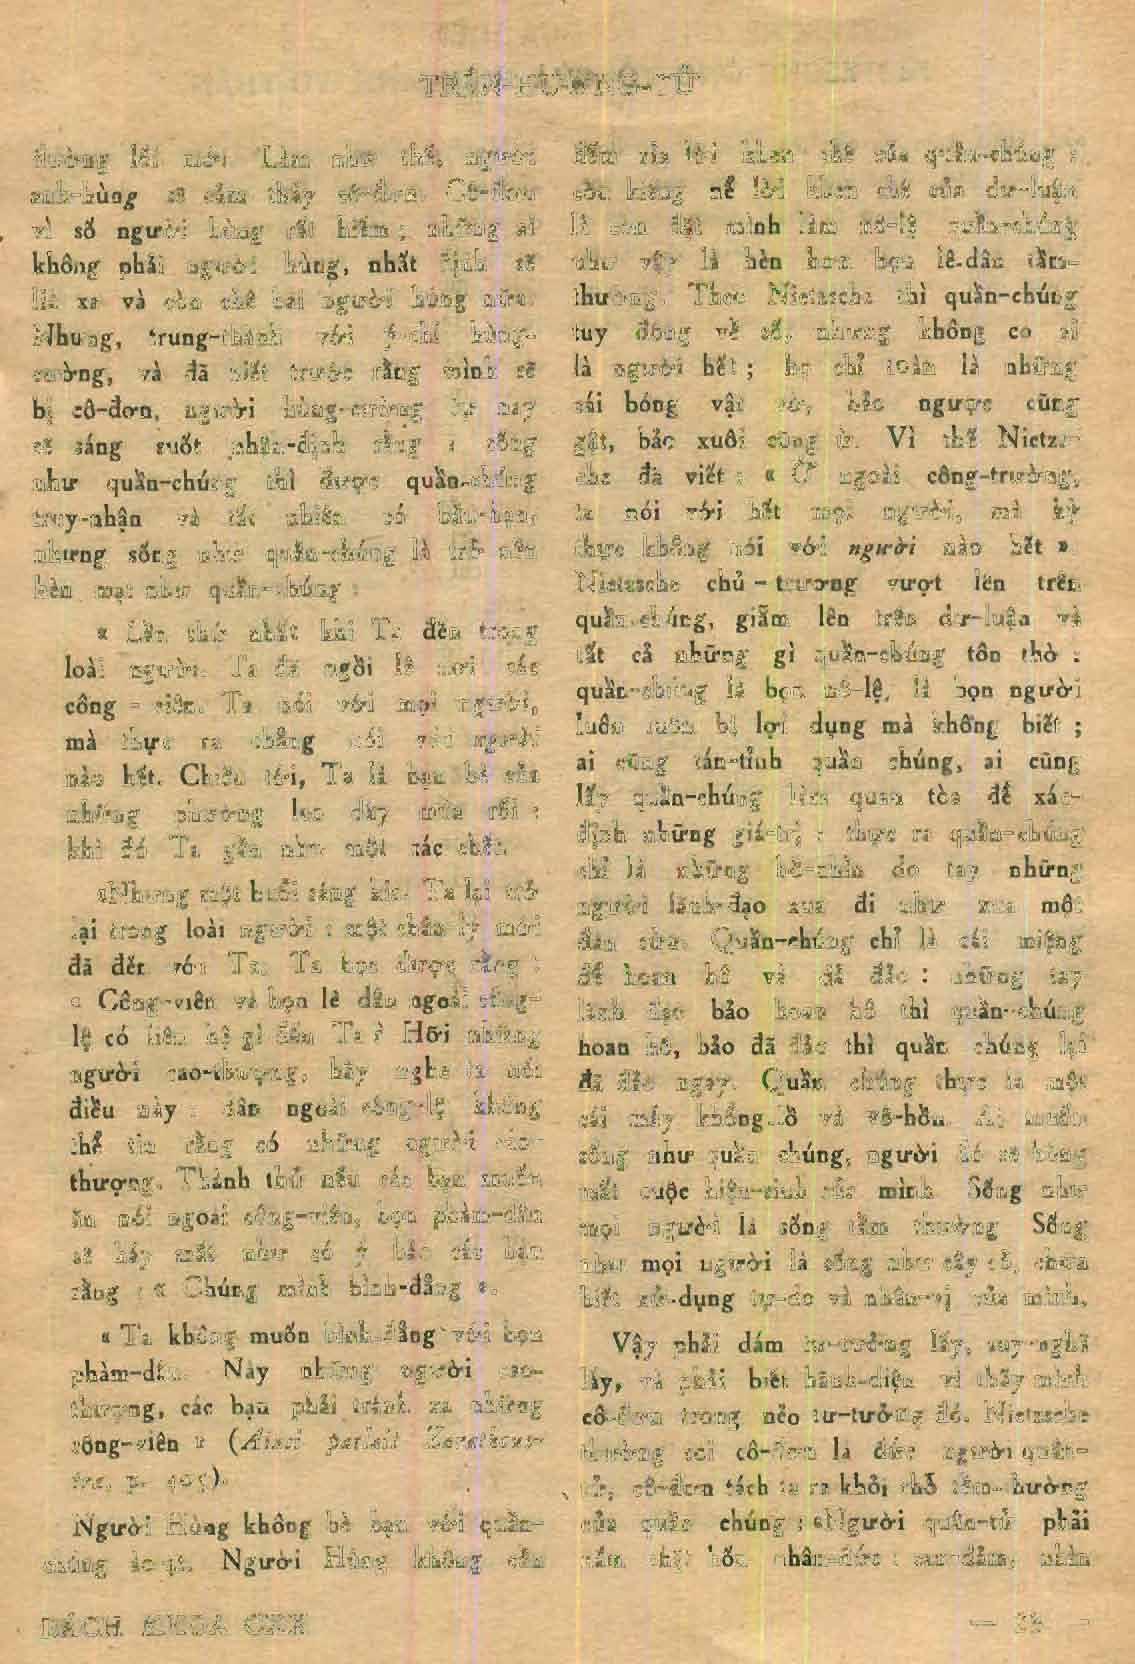 TRẦN-HƯƠNG-TỬ
đường lối mới. Làm như thế, người
anh-hùng sẽ cảm thấy cô-đơn. Cô-đơn
vì số người hùng rất hiếm ; những ai
không phải người hùng, nhất định sẽ
lìa xa và còn chê bai người hùng nữa.
Nhưng, trung-thành với ý-chí hùng-
cường, và đã biết trước rằng mình sẽ
bị cô-đơn, người hùng-cường tự nay
sẽ sáng suốt phân-định rằng : sống
như quần-chúng thì được quần-chúng
truy-nhận và tất nhiên có bầu-bạn,
nhưng sống như quần-chúng là trở nên
hèn mạt như quần-chúng :
« Lần thứ nhất khi Ta đến trong
loài người. Ta đã ngồi lê nơi các
công-viên. Ta nói với mọi người,
mà thực ra chẳng nói với người
nào hết. Chiều tới, Ta là bạn bè của
những phường leo dây múa rối ;
khi đó Ta gần như một xác chết.
«Nhưng một buổi sáng kia, Ta lại trở
lại trong loài người : một chân-lý mới
đã đến với Ta. Ta học được rằng :
« Công-viên và bọn lê dân ngoài công-
lộ có liên hệ gì đến Ta ? Hỡi những
người cao-thượng, hãy nghe ta nói
điều này : dân ngoài công-lộ không
thể tin rằng có những người cao-
thượng. Thành thử nếu các bạn muốn
ăn nói ngoài công-viên, bọn phàm-dân
sẽ háy mắt như có ý bảo các bạn
rằng : « Chúng mình bình-đẳng ».
« Ta không muốn bình-đẳng với bọn
phàm-dân. Này những người cao-
thượng, các bạn phải tránh xa những
công-viên » (Ainsi parlait Zarathous-
tra, p. 405).
Người Hùng không bè bạn với quần-
chúng ồ-ạt. Người Hùng không cần
đếm xỉa lời khen chê của quần-chúng ;
còn kiêng nể lời khen chê của dư-luận
là còn đặt mình làm nô-lệ quần-chúng
như vậy là hèn hơn bọn lê-dân tầm-
thường. Theo Nietzsche thì quần-chúng
tuy đông về số, nhưng không có ai
là người hết ; họ chỉ toàn là những
cái bóng vật vờ, bảo ngược cũng
gật, bảo xuôi cũng ừ. Vì thế Nietzs-
che đã viết : « Ở ngoài công-trường,
ta nói với hết mọi người, mà kỳ
thực không nói với người nào hết ».
Nietzsche chủ-trương vượt lên trên
quần-chúng, giẫm lên trên dư-luận và
tất cả những gì quần-chúng tôn thờ :
quần-chúng là bọn nô-lệ, là bọn người
luôn luôn bị lợi dụng mà không biết ;
ai cũng tán-tỉnh quần chúng, ai cũng
lấy quần-chúng làm quan tòa để xác-
định những giá-trị : thực ra quần-chúng
chỉ là những bồ-nhìn do tay những
người lãnh-đạo xua đi như xua một
đàn cừu. Quần-chúng chỉ là cái miệng
để hoan hô và đả đảo : những tay
lãnh đạo bảo hoan hô thì quần-chúng
hoan hô, bảo đả đảo thì quần chúng lại
đả đảo ngay. Quần chúng thực là một
cái máy khổng-lồ và vô-hồn. Ai muốn
sống như quần chúng, người đó sẽ hòng
mất cuộc hiện-sinh của mình. Sống như
mọi người là sống tầm thường. Sống
như mọi người là sống như cây cỏ, chưa
biết xử-dụng tự-do và nhân-vị của mình.
Vậy phải dám tư-tưởng lấy, suy-nghĩ
lấy, và phải biết hãnh-diện vì thấy mình
cô-đơn trong nẻo tư-tưởng đó. Nietzsche
thường coi cô-đơn là đức người quân-
tử, cô-đơn tách ta ra khỏi chỗ tầm-thường
của quần chúng : «Người quân-tử phải
nắm chặt bốn nhân-đức : can-đảm, nhìn
BÁCH KHOA